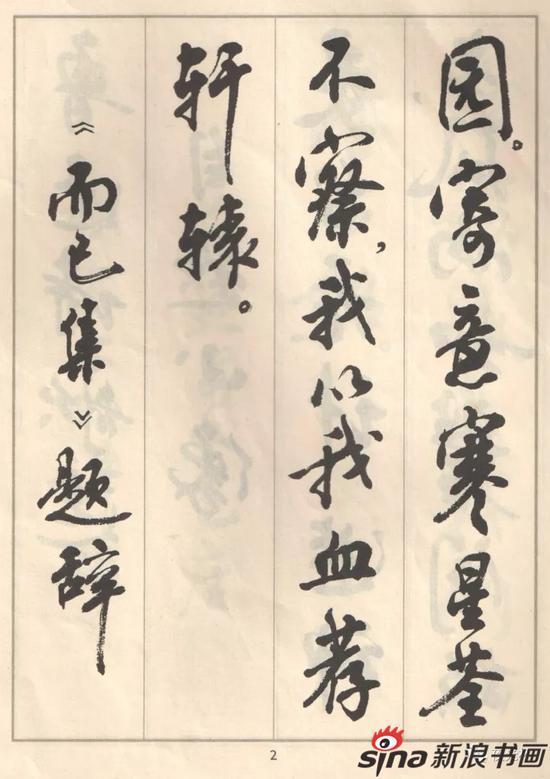 园。寄意寒星荃
不察，我以我血荐
轩辕。
《而已集》题辞
2
sina新浪书画